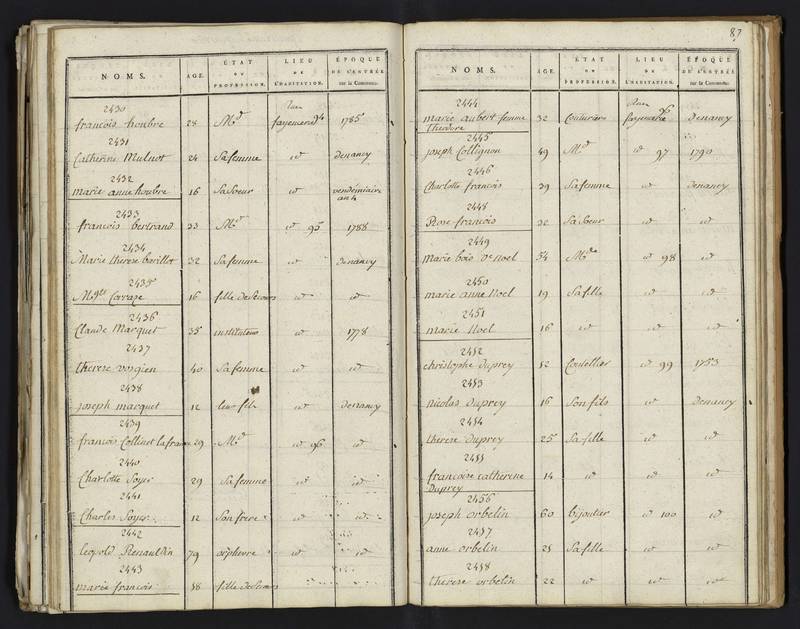 NOMS. AGE. ÉTAT OU PROFESSION. LIEU DE L'HABITATION. ÉPOQUE DE L'ENTRÉE sur la Commune.
2430 Rue
françois houbre 28 Md fayencerie 94 1785
2431
Catherine Mulnot 24 Sa femme id Denancy
2432
marie anne houbre 16 Sa Soeur id vendémiaire an 4
2433
francois bertrand 33 Md id 95 1788
2434
Marie therese barillot 32 Sa femme id Denancy
2435
16 fille de Secours id id
2436
Claude Marquet 35 instituteur id 1778
2437
therese vosgien 40 Sa femme id id
2438
joseph marquet 12 leur fils id Denancy
2439
françois Collinet lafrance 29 Md id 96 id
2440
Charlotte Soyer 29 Sa femme id id
2441
Charles Soyer 12 Son frere id id
2442
leopold Renauldin 79 orphevre id id
2443
marie françois 58 fille de Secours
87
NOMS. AGE. ÉTAT OU PROFESSION. LIEU DE L'HABITATION. ÉPOQUE DE L'ENTRÉE sur la Commune.
2444 Rue
marie aubert femme 32 Couturiere fayencerie 96 Denancy
Theodore
2445
joseph Collignon 49 Md id 97 1790
2446
Charlotte francois 39 Sa femme id Denancy
2448
Rose francois 32 Sa Soeur id id
2449
Marie bois Ve noel 54 Mde id 98 id
2450
marie anne Noel 19 Sa fille id id
2451
marie Noel 16 id id id
2452
christophe Duprey 52 Coutellier id 99 1753
2453
nicolas Duprey 16 Son fils id Denancy
2454
therese Duprey 25 Sa fille id id
2455
francoise catherine 14 id id id
Duprey
2456
joseph orbelin 60 bijoutier id 100 id
2457
anne orbelin 25 Sa fille id id
2458
therese orbelin 22 id id id